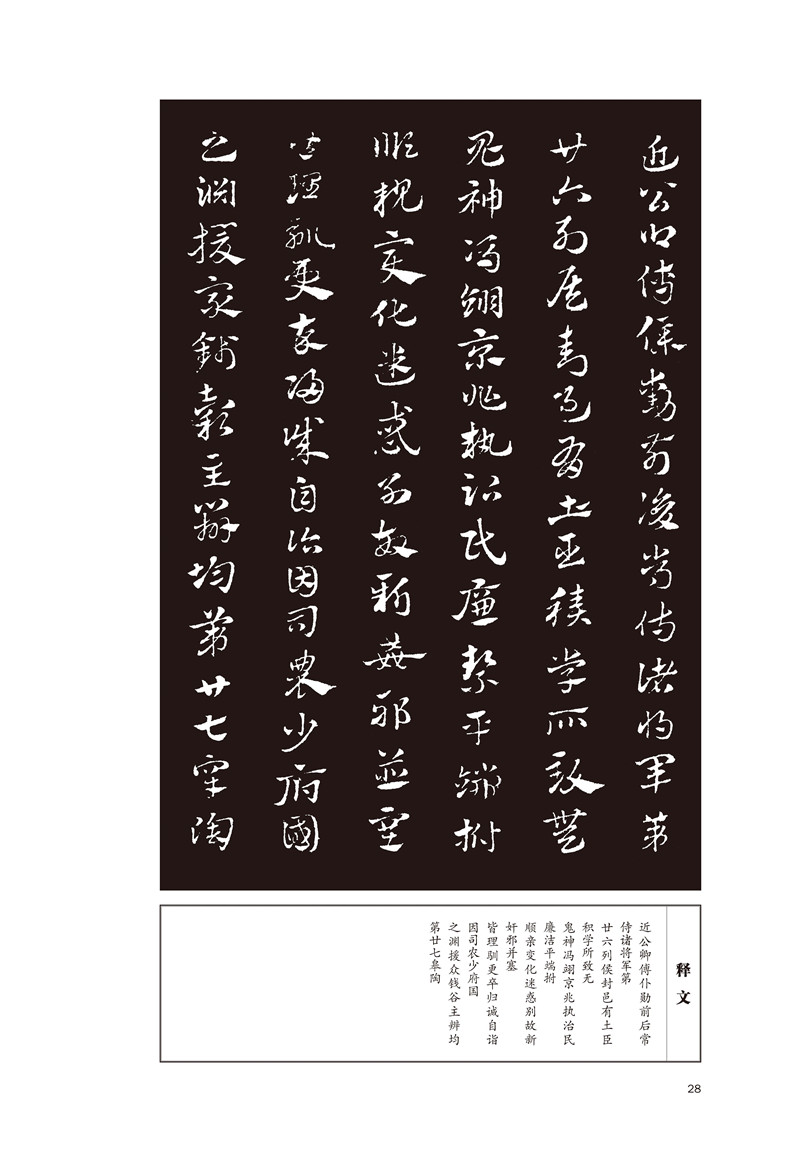 近公卿傅仆勋前后常侍诸将军第
廿六列侯封邑有土臣积学所致无
鬼神冯翊京兆执治民廉絜平端拊
顺親变化迷惑别故新奸邪並塞
皆理馴更卒归诚自诣因司農少府國
之渊援众錢穀主辨均第廿七皋陶
释文
近公卿傅仆勋前后常
侍诸将军第
廿六列侯封邑有土臣
积学所致无
鬼神冯翊京兆执治民
廉洁平端拊
顺亲变化迷惑别故新
奸邪并塞
皆理驯更卒归诚自诣
因司农少府国
之渊援众钱谷主辨均
第廿七皋陶
28